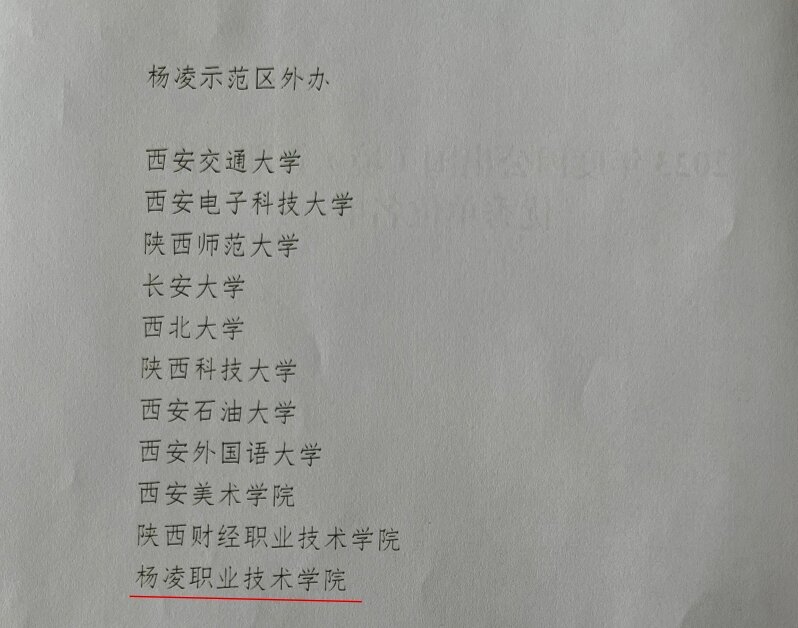 杨凌示范区外办
西安交通大学
西安电子科技大学
陕西师范大学
长安大学
西北大学
陕西科技大学
西安石油大学
西安外国语大学
西安美术学院
陕西财经职业技术学院
杨凌职业技术学院